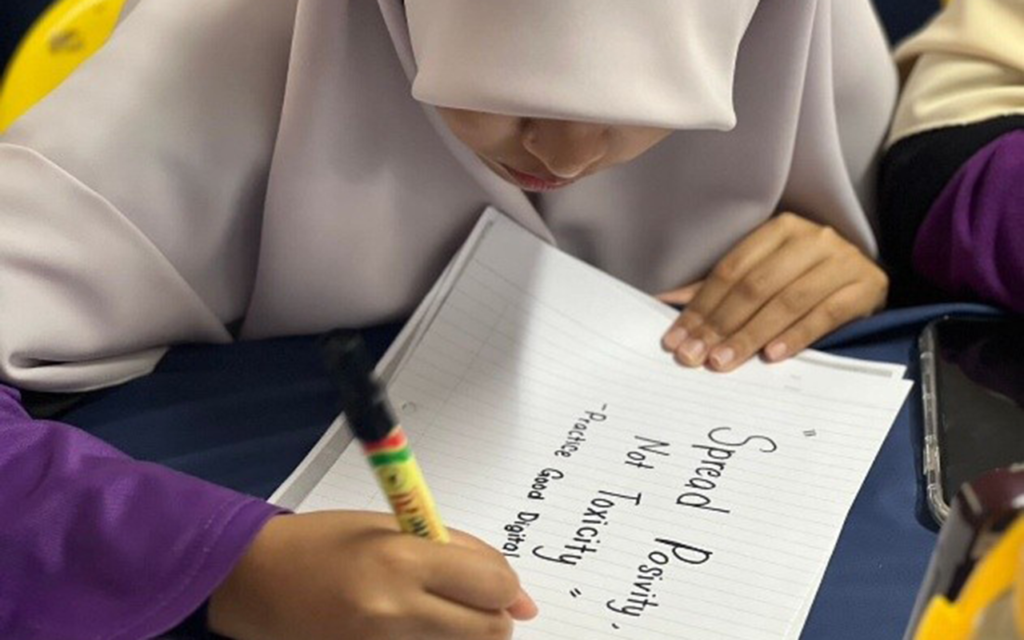 " Spread Posivity,
Not Toxicity "
-Practice Good Digital